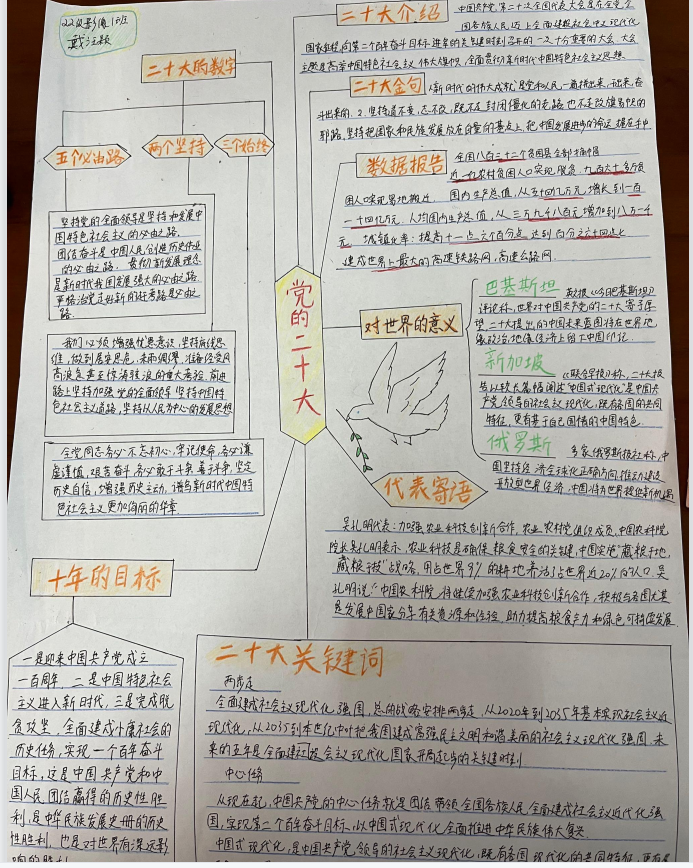 22级影像1班
戴注颖
二十大的数字
五个必由路
两个坚持
三个始终
坚持党的全面领导是坚持和发展中
国特色社会主义的必由之路,
团结奋斗是中国人民创造历史伟业
的必由之路. 贯彻新发展理念
是新时代我国发展强大的必由之路
严格治党走好新的赶考路是必由之
路
我们必须增强忧患意识,坚持底线思
维,做到居安思危、未雨绸缪,准备经受风
高浪急甚至惊涛骇浪的重大考验.前进
路上坚持加强党的全面领导坚持中国特
色社会主义道路,坚持以人民为中心的发展思想
全党同志务必不忘初心、牢记使命,务必谦
虚谨慎、艰苦奋斗,务必敢于斗争、善于斗争,坚定
历史自信,增强历史主动,谱写新时代中国特
色社会主义更加绚丽的华章
十年的目标
一是迎来中国共产党成立
一百周年,二是中国特色社会
主义进入新时代,三是完成脱
贫攻坚、全面建成小康社会的
历史任务,实现一个百年奋斗
目标,这是中国共产党和中
国人民团结赢得的历史性胜
利,是中华民族发展史册的历史
性胜利,也是对世界有深远影
响的胜利
党的二十大
二十大介绍
中国共产党第二十次全国代表大会是在全党全
国各族人民迈上全面建设社会主义现代化
国家征程,向第二个百年奋斗目标进军的关键时刻召开的一次十分重要的大会.大会
主题是高举中国特色社会主义伟大旗帜,全面贯彻新时代中国特色社会主义思想
二十大金句
1.新时代的伟大成就是党和人民一道拼出来、干出来、奋
斗出来的. 2.坚持道不变、志不改,既不走封闭僵化的老路,也不走改旗易帜的
邪路,坚持把国家和民族发展放在自己力量的基点上,把中国发展进步的命运握在手中
数据报告
全国八百三十二个贫困县全部摘帽
近一亿农村贫困人口实现脱贫,九百六十多万贫
困人口实现易地搬迁, 国内生产总值,从五十四万亿元,增长到一百
一十四亿万元,人均国内生产总值,从三万九千八百元增加到八万一千
元 城镇化率:提高十一点六个百分点 达到百分之六十四点七
建成世界上最大的高速铁路网,高速公路网.
对世界的意义
巴基斯坦
英报《今日巴基斯坦》
评论称,世界对中国共产党的二十大寄予厚
望,二十大提出的中国未来蓝图将在世界地
缘政治、地缘经济上留下中国印记.
新加坡
《联合早报》称,二十大报
告以较长篇幅阐述"中国式现代化"是中国共
产党领导的社会主义现代化,既有各国的共同
特征,更有基于自己国情的中国特色
俄罗斯
多家俄罗斯媒社称,中
国坚持经济全球化正确方向,推动建设
开放型世界经济,中国将为世界提供新机遇
代表寄语
吴孔明代表:加强农业科技创新合作,农业农村党组织成员,中国农科院
院长吴孔明表示,农业科技是确保粮食安全的关键,中国实施"藏粮于地,
藏粮于技"战略,用占世界9%的耕地养活占世界近20%的人口.吴
孔明说:"中国农科院将继续加强农业科技创新合作,积极与各国尤其
是发展中国家分享有关资源和经验,助力提高粮食产力和绿色可持续发展
二十大关键词
两步走
全面建成社会主义现代化强国,总的战略安排两步走,从2020年到2035年基本实现社会主义近
现代化,从2035到本世纪中叶把我国建成富强民主文明和谐美丽的社会主义现代化强国.未
来的五年是全面建社设会主义现代化国家开局起步的关键时刻
中心任务
从现在起,中国共产党的中心任务就是团结带领全国各族人民全面建成社会主义近代化强
国,实现第二个百年奋斗目标,以中国式现代化全面推进中华民族伟大复兴
中国式现代化,是中国共产党领导的社会主义现代化,既有各国现代化的共同特征,更有基